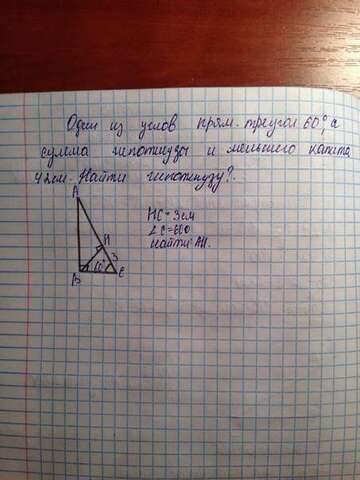 Один из углов прям. треугол 60°, а
сумма гипотинузы и меньшего катета
42см. Найти гипотинузу?.
A
HC=3см
∠C=60
найти: AH.
H
3
60°
B
C